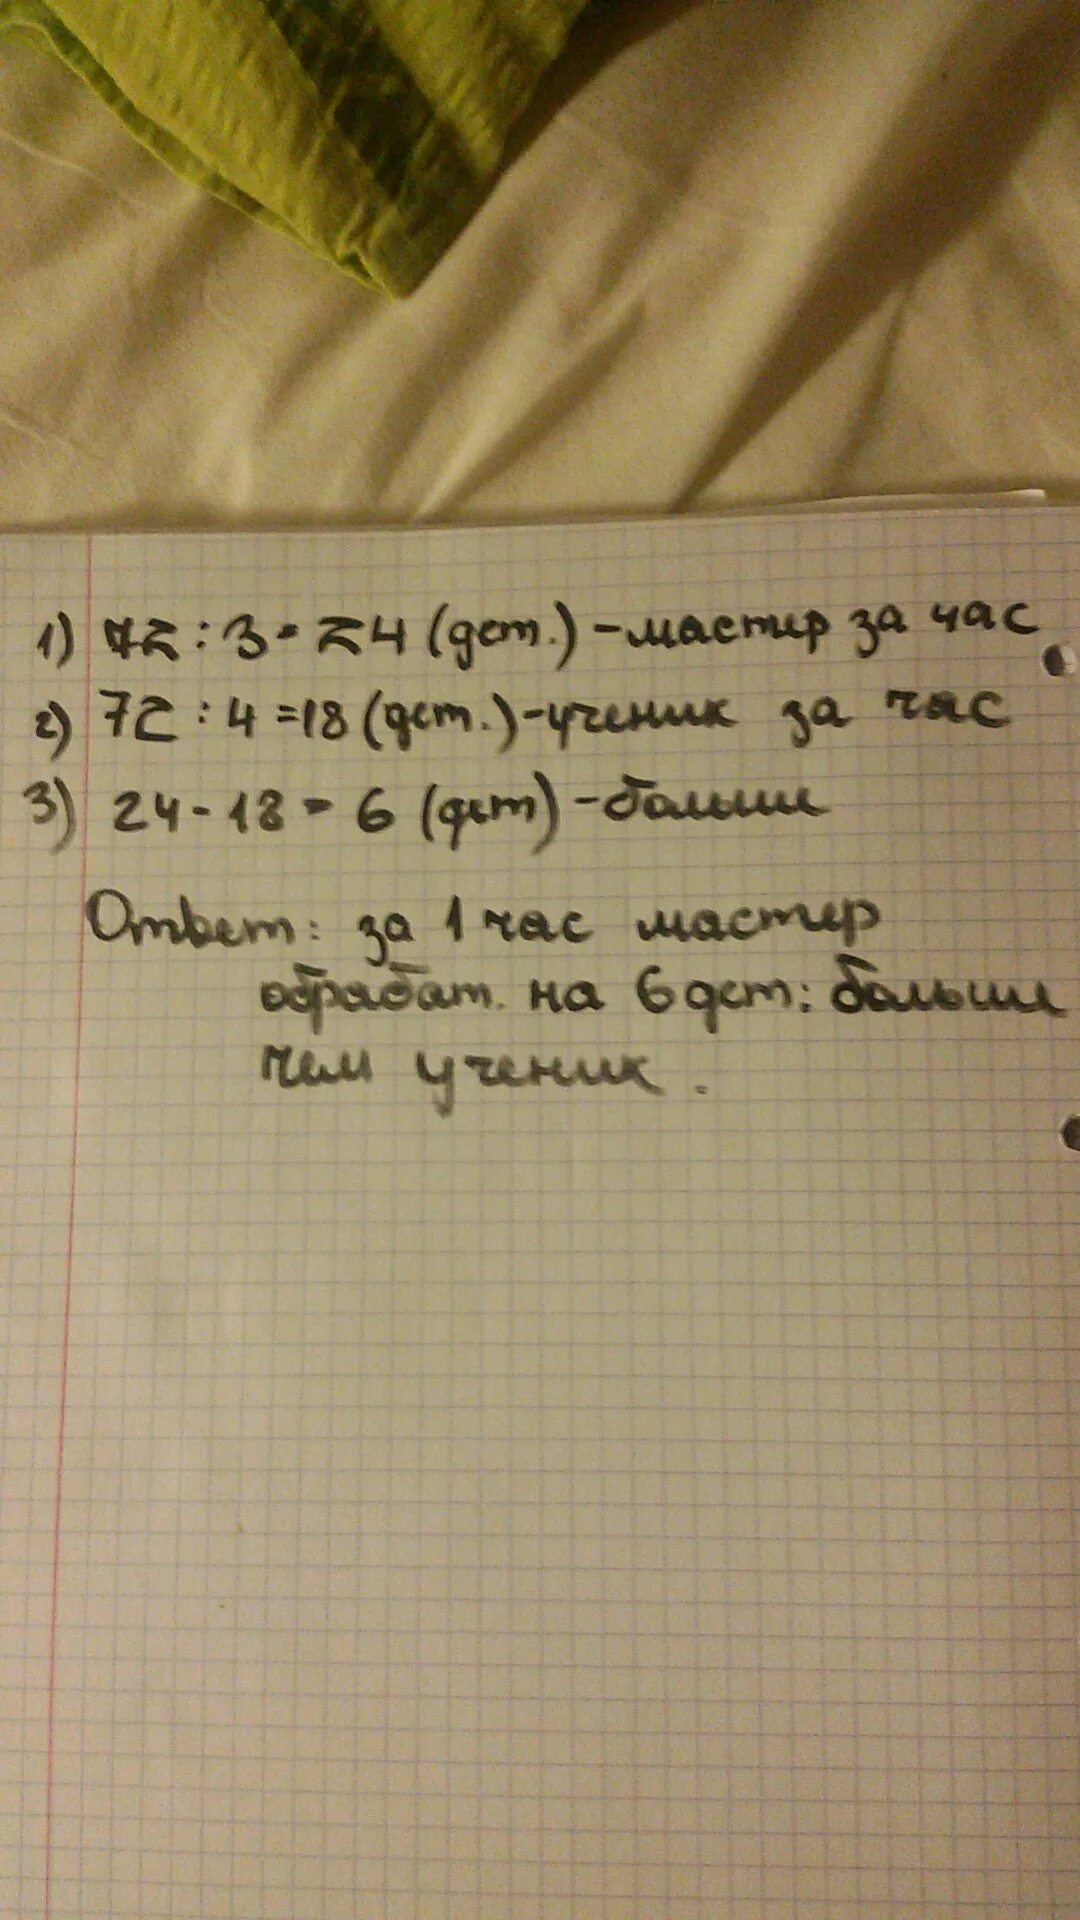 1) 72 : 3 = 24 (дет.) - мастер за час
2) 72 : 4 = 18 (дет.) - ученик за час
3) 24 - 18 = 6 (дет) - больше
Ответ: за 1 час мастер
обработ. на 6 дет: больше
чем ученик.